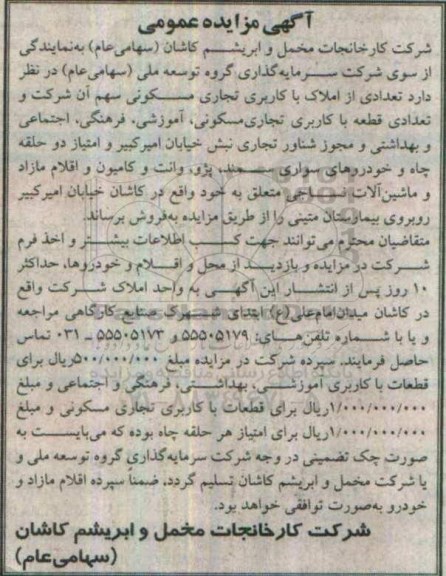 آگهی مزایده عمومی
شرکت کارخانجات مخمل و ابریشم کاشان (سهامی‌عام) به‌نمایندگی
از سوی شرکت سرمایه‌گذاری گروه توسعه ملی (سهامی‌عام) در نظر
دارد تعدادی از املاک با کاربری تجاری مسکونی سهم آن شرکت و
تعدادی قطعه با کاربری تجاری‌مسکونی، آموزشی، فرهنگی، اجتماعی
و بهداشتی و مجوز شناور تجاری نبش خیابان امیرکبیر و امتیاز دو حلقه
چاه و خودروهای سواری سمند، پژو، وانت و کامیون و اقلام مازاد
و ماشین‌آلات نساجی متعلق به خود واقع در کاشان خیابان امیرکبیر
روبروی بیمارستان متینی را از طریق مزایده به‌فروش برساند.
متقاضیان محترم می‌توانند جهت کسب اطلاعات بیشتر و اخذ فرم
شرکت در مزایده و بازدید از محل و اقلام و خودروها، حداکثر
۱۰ روز پس از انتشار این آگهی به واحد املاک شرکت واقع
در کاشان میدان‌امام‌علی(ع) ابتدای شهرک صنایع کارگاهی مراجعه
و یا با شماره تلفن‌های: ۵۵۵۰۵۱۷۹ و ۵۵۵۰۵۱۷۳ ـ ۰۳۱ تماس
حاصل فرمایند. سپرده شرکت در مزایده مبلغ ۵۰۰/۰۰۰/۰۰۰ریال برای
قطعات با کاربری آموزشی، بهداشتی، فرهنگی و اجتماعی و مبلغ
۱/۰۰۰/۰۰۰/۰۰۰ریال برای قطعات با کاربری تجاری مسکونی و مبلغ
۱/۰۰۰/۰۰۰/۰۰۰ریال برای امتیاز هر حلقه چاه بوده که می‌بایست به
صورت چک تضمینی در وجه شرکت سرمایه‌گذاری گروه توسعه ملی و
یا شرکت مخمل و ابریشم کاشان تسلیم گردد. ضمناً سپرده اقلام مازاد و
خودرو به‌صورت توافقی خواهد بود.
شرکت کارخانجات مخمل و ابریشم کاشان
(سهامی‌عام)